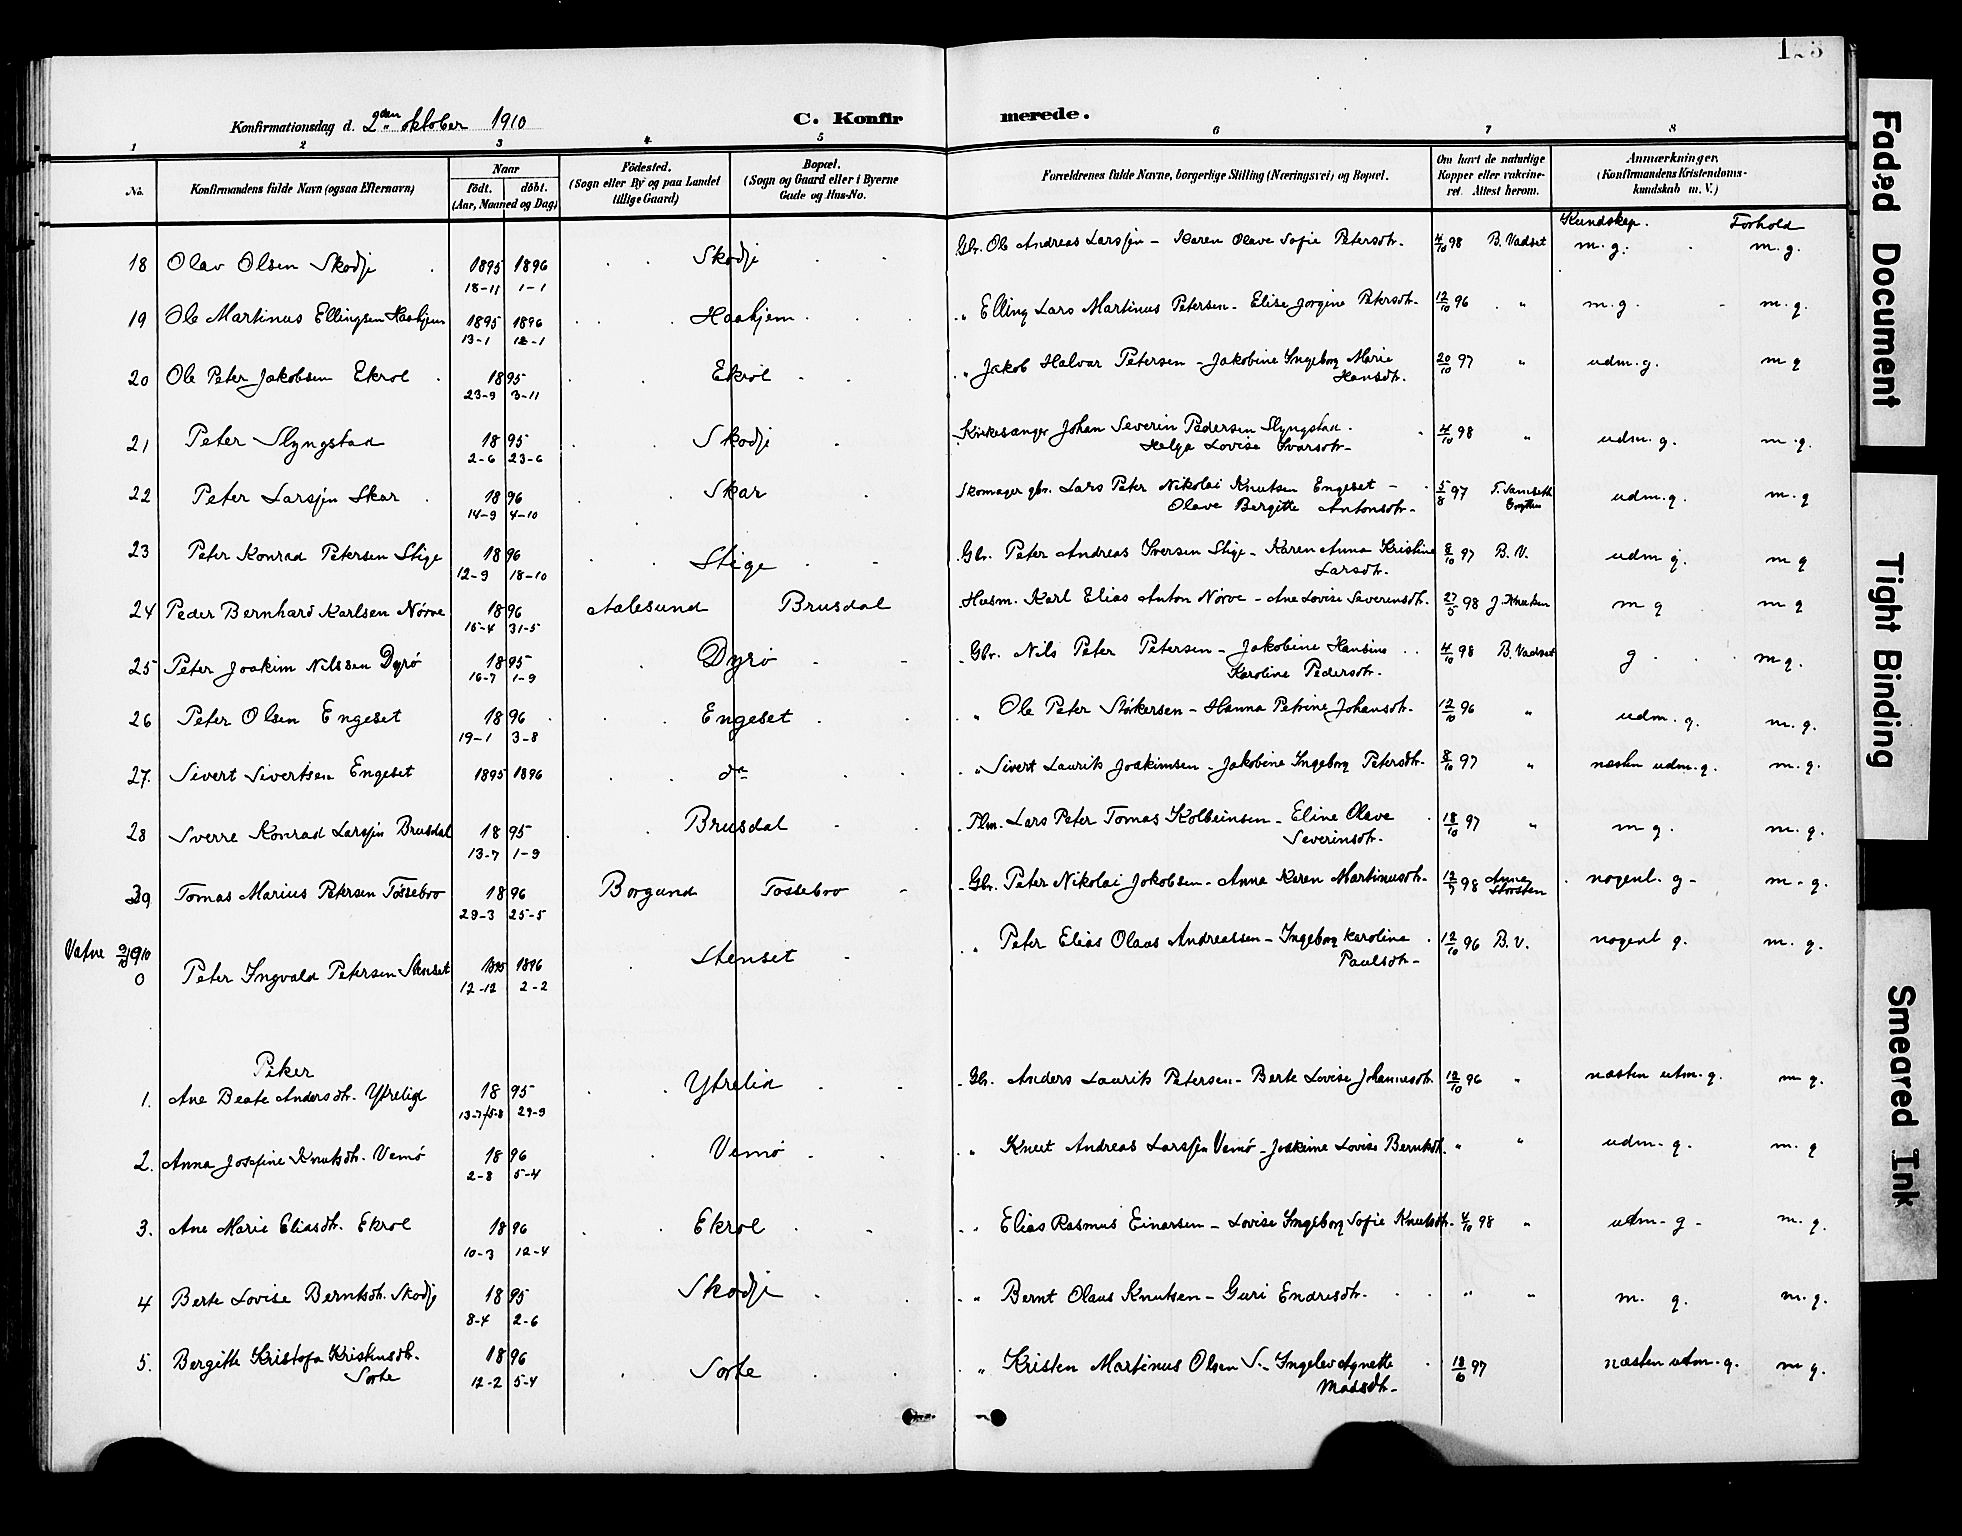 Konfirmationsdag d. 2den oktober 1910
C. Konfirmerede.
1 2 3 4 5 6 7 8
No. Konfirmandens fulde Navn (ogsaa Efternavn) Naar födt. döbt. (Aar, Maaned og Dag) Födested. (Sogn eller By og paa Landet tillige Gaard) Bopæl. (Sogn og Gaard eller i Byerne Gade og Hus-No. Forældrenes fulde Navne, borgerlige Stilling (Næringsvei) og Bopæl. Om havt de naturlige Kopper eller vakcineret. Attest herom. Anmærkninger. (Konfirmandens Kristendomskundskab m. V.)
Kundskap. Forhold
18 Olav Olsen Skodje 1895 1896 Skodje Gbr. Ole Andreas Larssen - Karen Olave Sofie Petersdtr. 4/10 98 B. Vadset m. g. m. g.
18-11 1-1
19 Ole Martinus Ellingsen Haahjem 1895 1896 Haahjem " Elling Lars Martinus Petersen - Elise Jorgine Petersdtr. 12/10 96 " m. g. m. g.
13-1 12-1
20 Ole Peter Jakobsen Ekrol 1895 Ekrol " Jakob Halvar Petersen - Jakobine Ingeborg Marie Hansdtr. 20/10 97 " udm. g. m g
23-9 3-11
21 Peter Slyngstad 1895 Skodje Kirkesanger Johan Severin Pedersen Slyngstad. 4/10 98 " udm. g. m. g.
2-6 23-6 Helga Lovise Ivarsdtr.
22 Peter Larssen Skar 1896 Skar Skomager gbr. Lars Peter Nikolai Knutsen Engeset - 5/8 97 udm. g. m. g
14-9 4-10 Olave Bergitte Antonsdtr.
23 Peter Konrad Petersen Stige 1896 Stige Gbr. Peter Andreas Iversen Stige - Karen Anna Kristine Larsdtr. 8/10 97 B. V. udm g. m g
12-9 18-10
24 Peder Bernhard Karlsen Nörve 1896 Aalesund Brusdal Husm. Karl Elias Anton Nörve - Ane Lovise Severinsdtr. 27/5 98 J. Knutsen m g m g
15-4 31-5
25 Peter Joakim Nilssen Dyrö 1895 Dyrö Gbr. Nils Peter Petersen - Jakobine Hansine Karoline Pedersdtr. 4/10 98 B. Vadset g m g.
16-7 1-9
26 Peter Olsen Engeset 1896 Engeset " Ole Peter Störkersen - Hanna Petrine Johansdtr. 12/10 96 " udm. g. m. g.
19-1 3-8
27. Sivert Sivertsen Engeset 1895 1896 do " Sivert Laurits Joakimsen - Jakobine Ingeborg Petersdtr. 8/10 97 " næsten udm. g. m. g.
28 Sverre Konrad Larssen Brusdal 1895 Brusdal Plm. Lars Peter Tomas Kolbeinsen - Eline Olave Severinsdtr. 18/10 97 " m g. m. g.
13-7 1-9
29 Tomas Marius Petersen Tössebro 1896 Borgund Tossebro Gbr. Peter Nikolai Jokobsen - Anna Karen Martinusdtr. 98 nogenl. g - m - g.
29-3 25-5
Vatne 9/10 1910
0 Peter Ingvald Petersen Stenset 1895 1896 Stenset " Peter Elias Olaus Andreassen - Ingeborg Karolina Paulsdtr. 12/10 96 B. V. nogenl g. m. g.
12-12 2-2
Piker
1. Ane Beate Andersdtr. Ytrelid 1895 Ytrelid Gbr. Anders Laurits Petersen - Berte Lovise Johannesdtr. 12/10 96 " næsten utm. g. m g.
29-9
2. Anna Josefine Knutsdtr. Vemö 1896 Vemö " Knut Andreas Larssen Vemö - Joakime Lovise Berntsdtr. " " udm. g. m. g
2-3 5-4
3. Ane Marie Eliasdtr. Ekrol 1896 Ekrol " Elias Rasmus Einarsen - Lovise Ingeborg Sofie Knutsdtr. 4/10 98 " utm. g - m. g.
10-3 12-4
4 Berte Lovise Berntsdtr. Skodje 1895 Skodje " Bernt Olaus Knutsen - Guri Endresdtr. " " m. g. m. g.
8-4 2-6
5. Bergitte Kristofa Kristensdtr. Sorte 1896 Sorte " Kristen Martinus Olsen S. - Ingelev Agnette Madsdtr. 97 næsten utm. g. m g.
12-2 5-4
Faded Document
Tight Binding
Smeared Ink